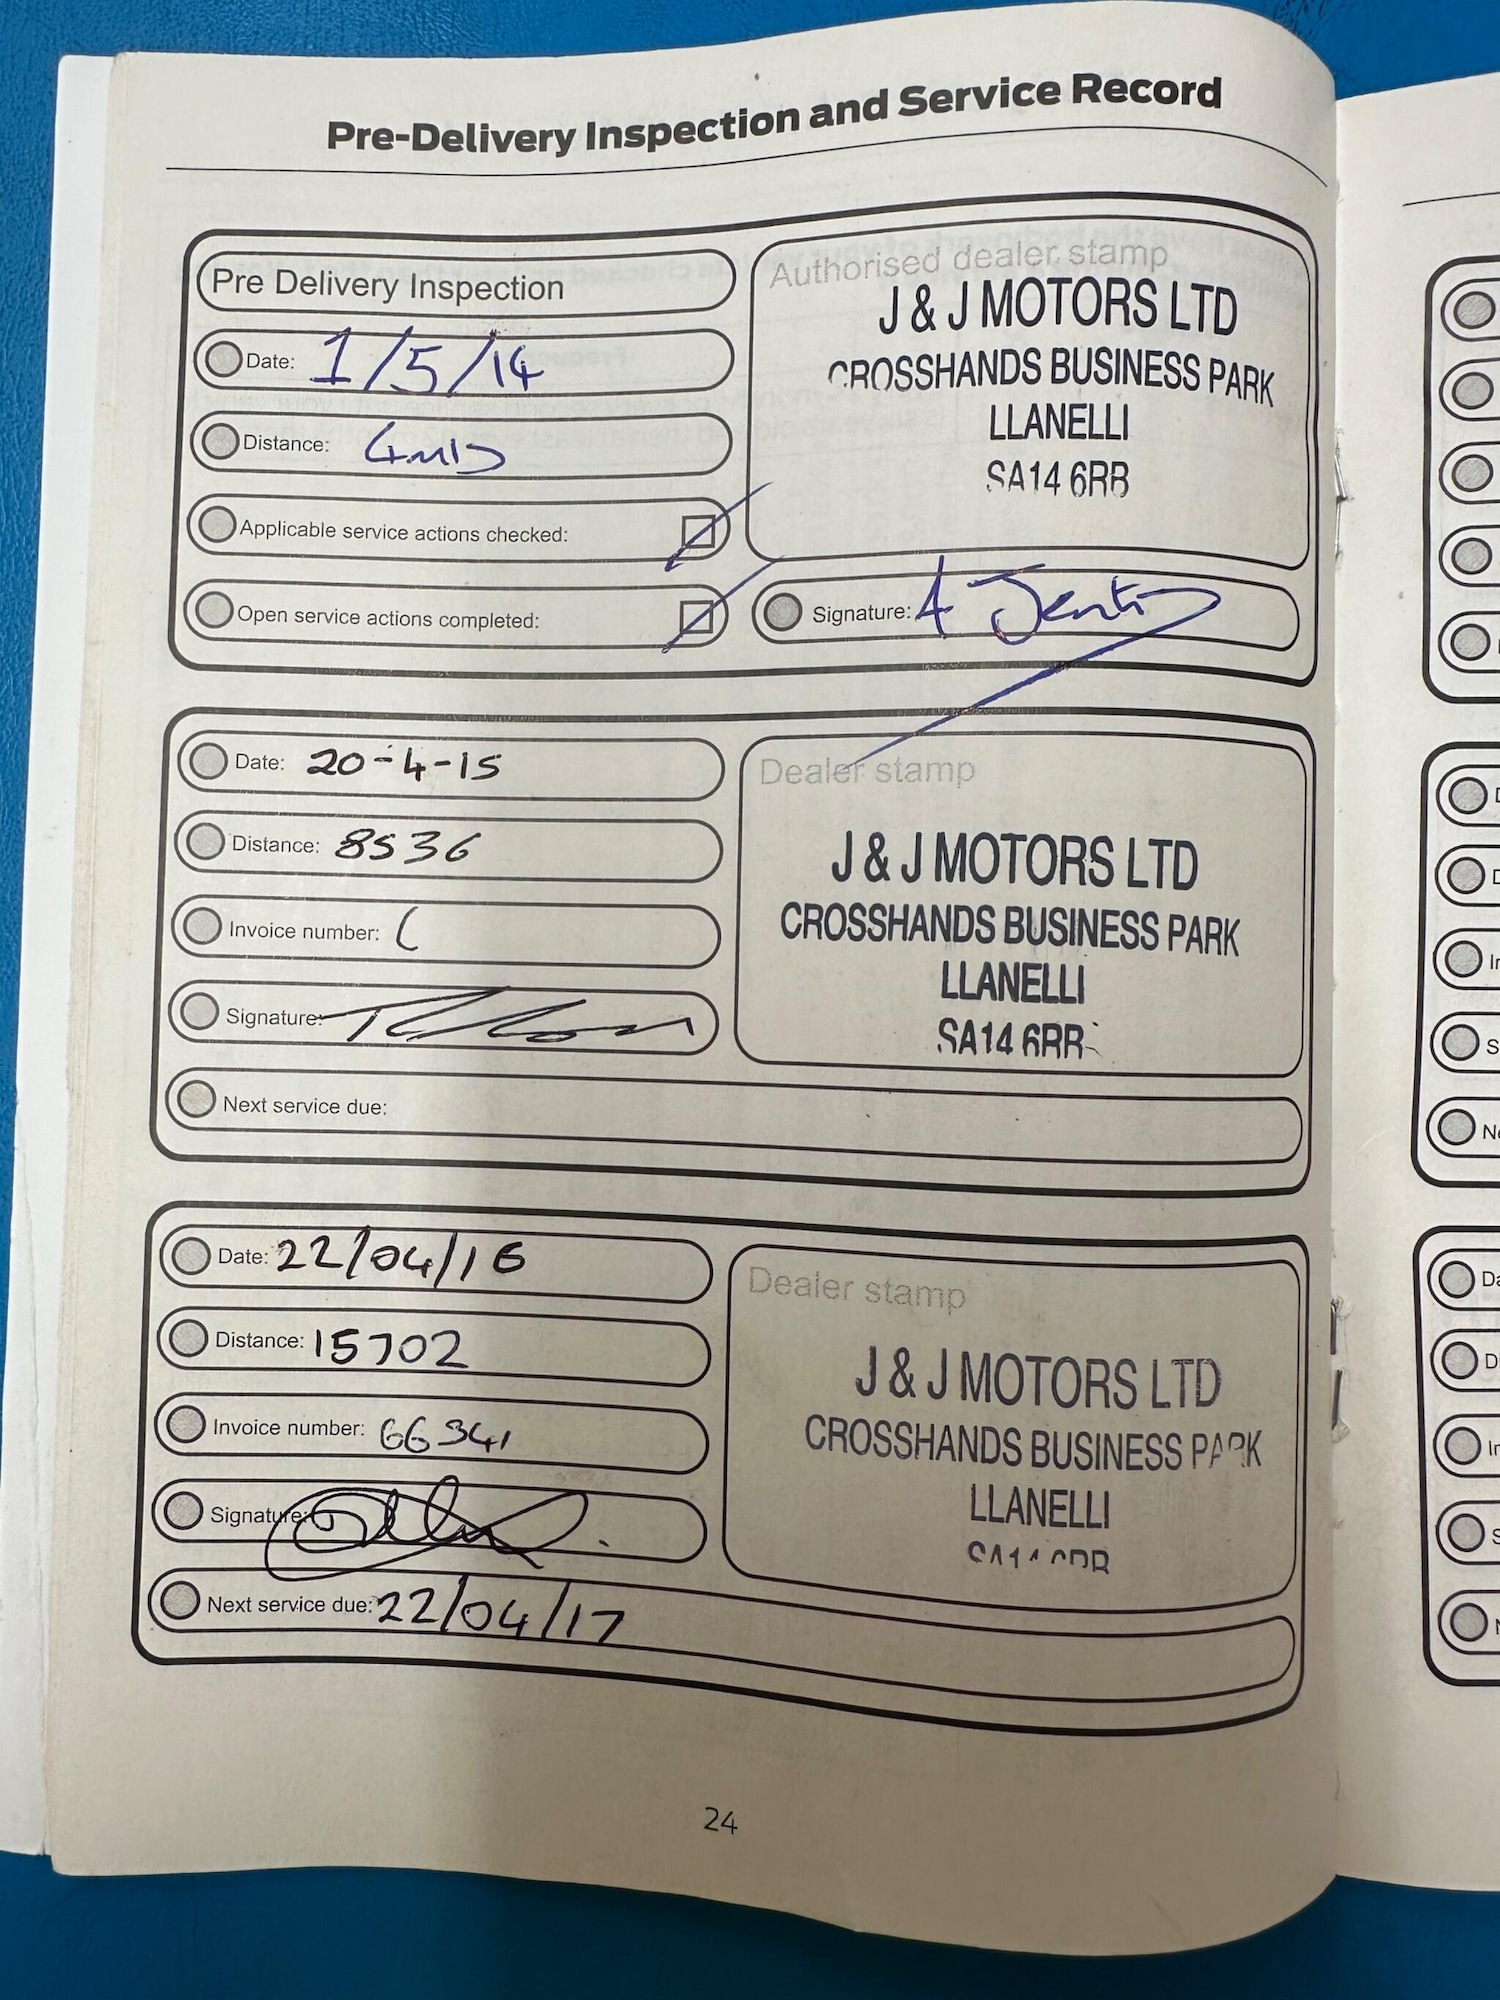 Pre-Delivery Inspection and Service Record
Pre Delivery Inspection
Date: 1/5/14
Distance:
Applicable service actions checked:
Open service actions completed:
Authorised dealer stamp
J & J MOTORS LTD
CROSSHANDS BUSINESS PARK
LLANELLI
SA14 6RB
Signature: A
Date: 20-4-15
Distance: 8536
Invoice number:
Signature:
Next service due:
Dealer stamp
J & J MOTORS LTD
CROSSHANDS BUSINESS PARK
LLANELLI
SA14 6RB
Date: 22/04/16
Distance: 15702
Invoice number: 66341
Signature:
Next service due: 22/04/17
Dealer stamp
J & J MOTORS LTD
CROSSHANDS BUSINESS PARK
LLANELLI
24